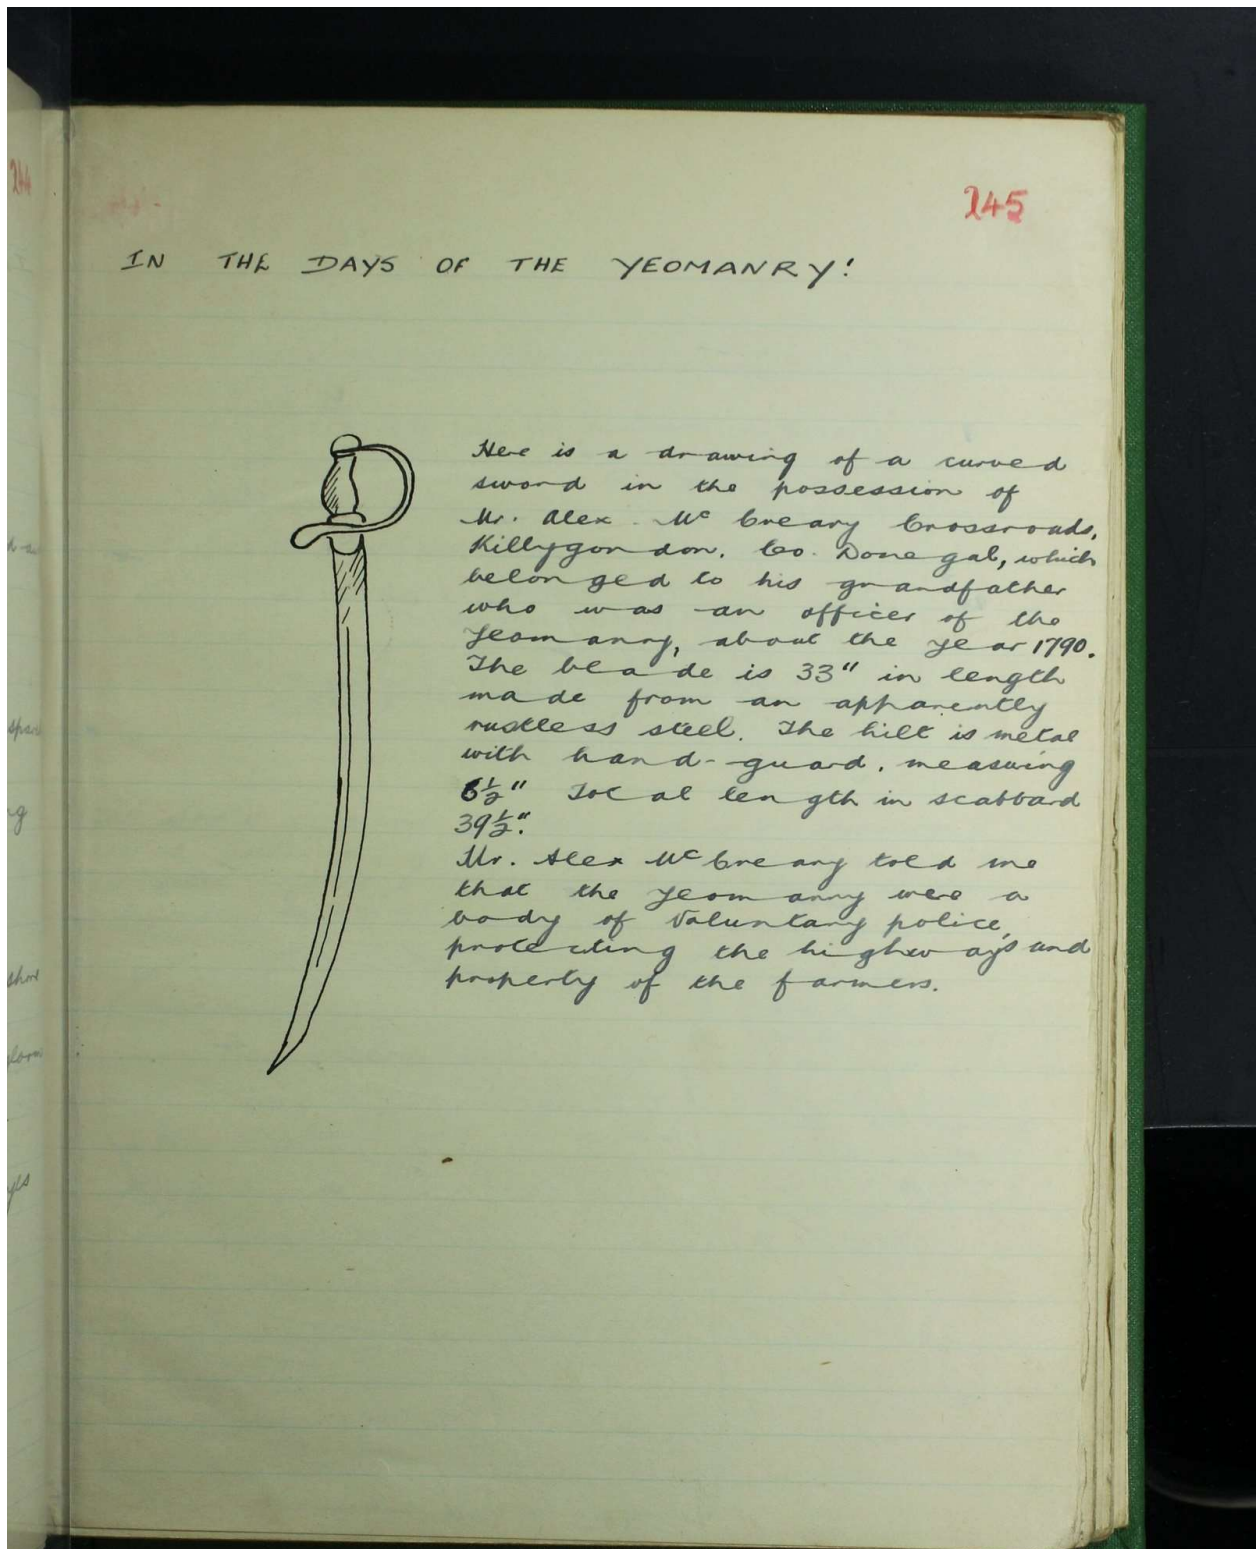 245
IN THE DAYS OF THE YEOMANRY!
Here is a drawing of a curved
sword in the possession of
Mr. Alex. Mc Creary Crossroads,
Killygordon, Co. Donegal, which
belonged to his grandfather
who was an officer of the
Yeomanry, about the year 1790.
The blade is 33" in length
made from an apparently
rustless steel. The hilt is metal
with hand-guard, measuring
6½" Total length in scabbard
39½".
Mr. Alex Mc Creary told me
that the Yeomanry were a
body of Voluntary police,
protecting the highways and
property of the farmers.
244